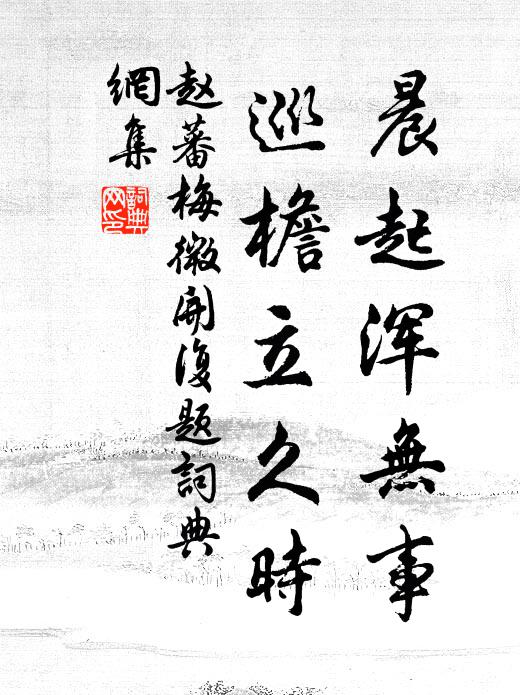 晨起浑無事
巡檐立久時
赵蕃梅微開復題詞典
網集
詞典
网印